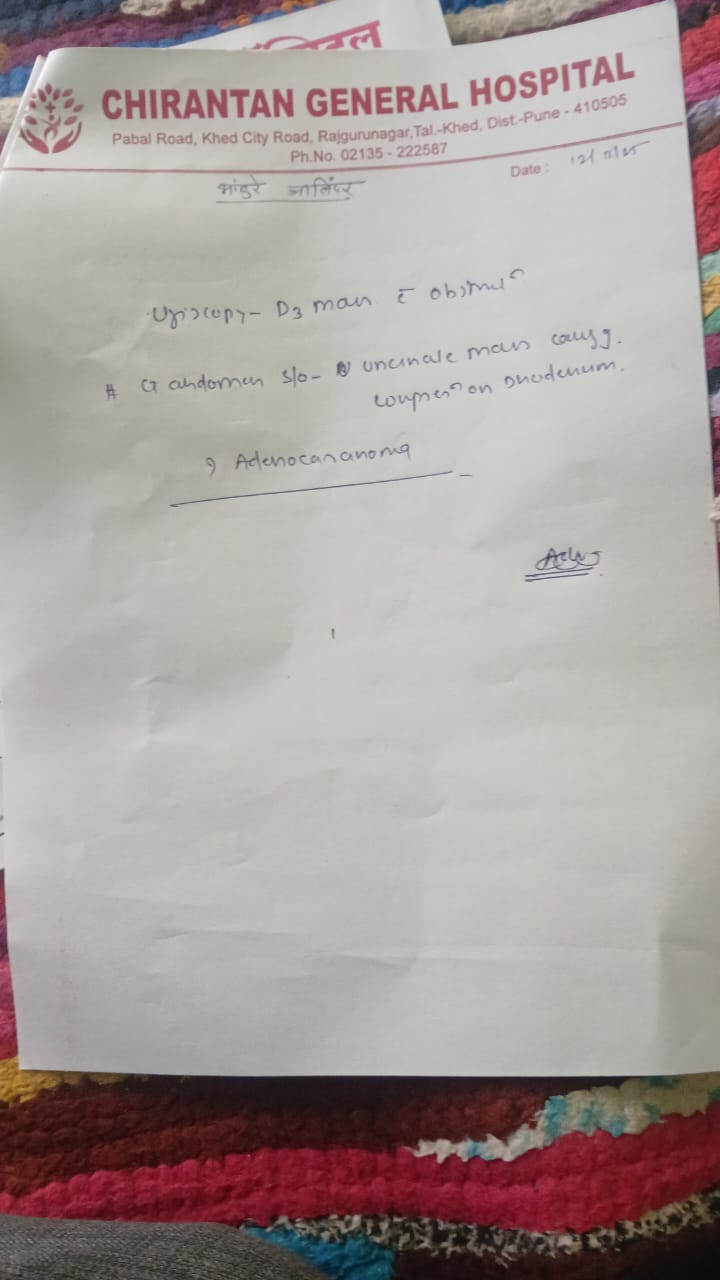 CHIRANTAN GENERAL HOSPITAL
Pabal Road, Khed City Road, Rajgurunagar,Tal.-Khed, Dist.-Pune - 410505
Ph.No. 02135 - 222587
Date : 12/11/25
जालिंदर
Ugiscopy - D3 mass c̄ obstruⁿ
# CT abdomen s/o - uncinate mass causg.
compresⁿ on Duodenum.
? Adenocarcinoma